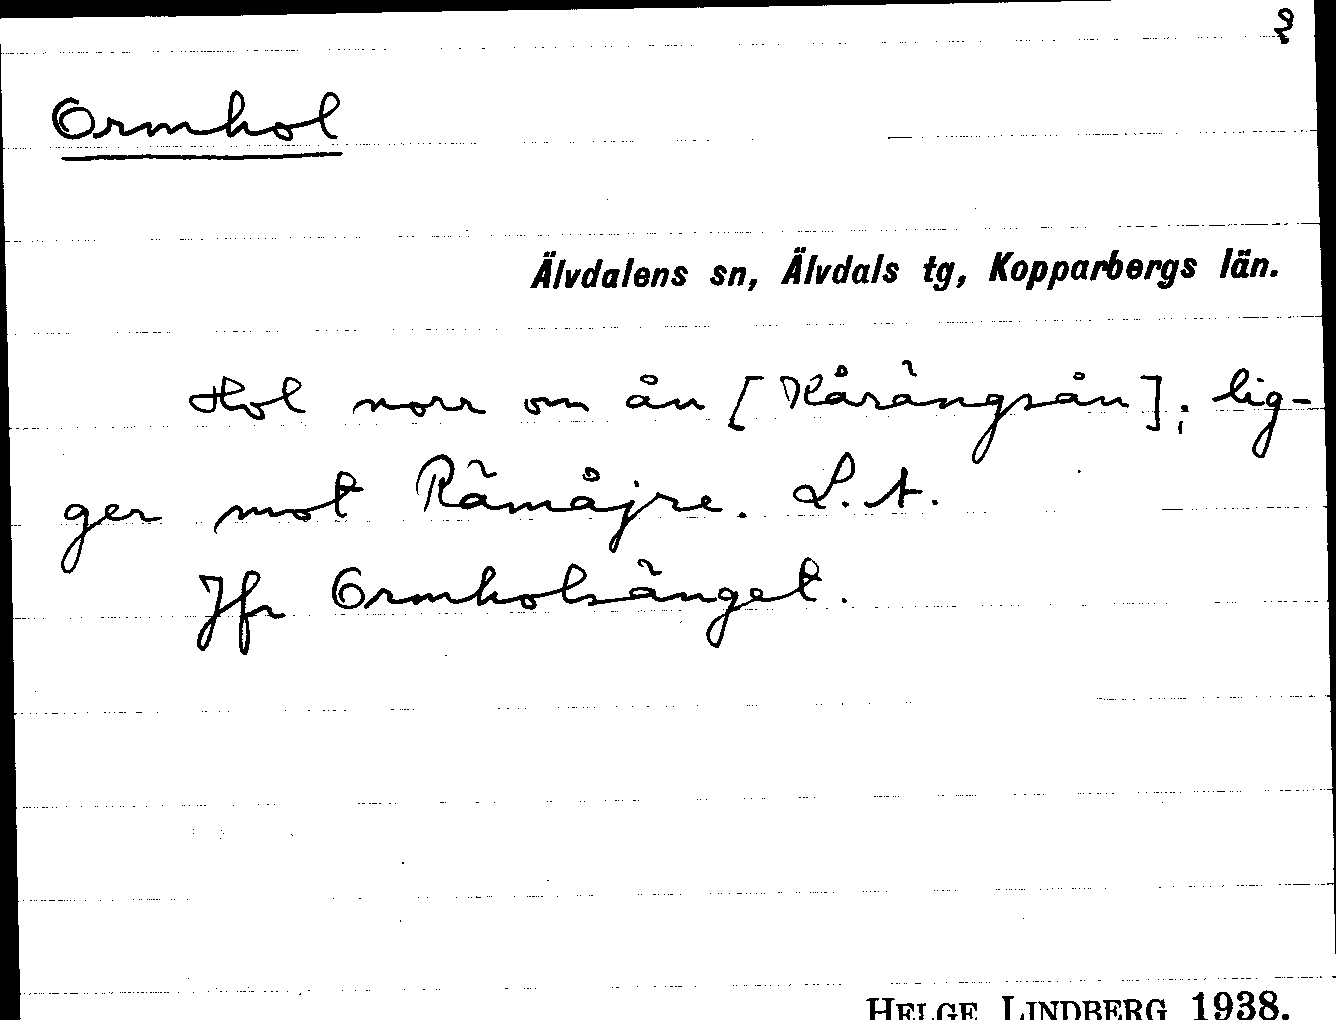 Ormhol
Älvdalens sn, Älvdals tg, Kopparbergs län.
Hol norr om ån [Kårängsån]; lig-
ger mot Rämåjre. L. A.
Jfr Ormholsänget.
HELGE LINDBERG 1938.